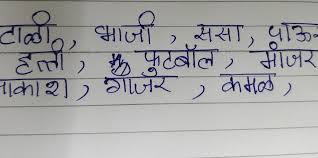 टाळी, भाजी, ससा, पाऊ
हत्ती, फुटबॉल, मांजर
गाजर, कमळ,